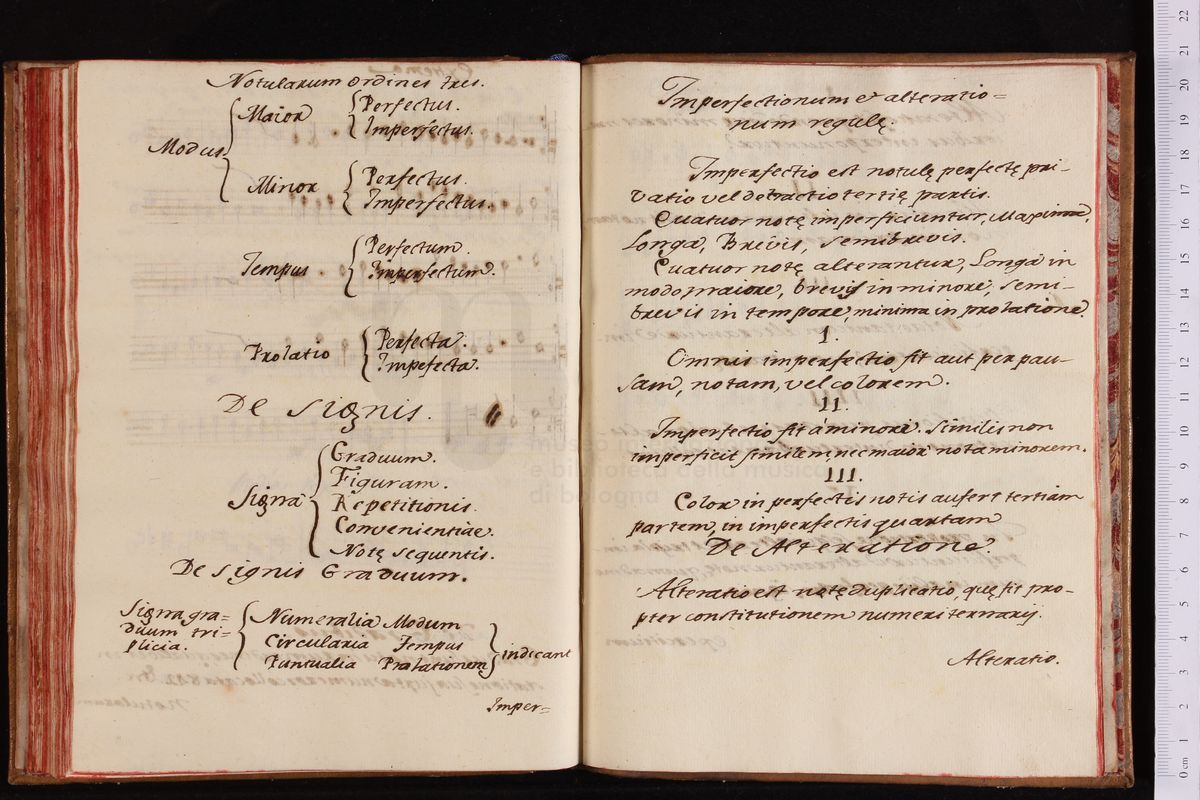 Notularum ordines tres.
Modus
Maior
Perfectus.
Imperfectus.
Minor
Perfectus.
Imperfectus.
Tempus
Perfectum.
Imperfectum.
Prolatio
Perfecta.
Impefecta.
De signis.
Signa
Graduum.
Figuram.
Repetitionis.
Convenientiae.
Notę sequentis.
De signis Graduum.
Signa gra=
duum tri=
plicia.
Numeralia Modum
Circularia Tempus
Puntualia Prolationem
indicant
Imper=
Imperfectionum & alteratio=
num regulę.
Imperfectio est notulę perfectę pri-
vatio vel detractio tertię partis.
Quatuor notę imperficiuntur, Maxima,
Longa, Brevis, semibrevis.
Quatuor notę alterantur, Longa in
modo maiore, brevis in minore, semi-
brevis in tempore, minima in prolatione.
I.
Omnis imperfectio fit aut per pau-
sam, notam, vel colorem.
II.
Imperfectio fit à minore. Similis non
imperficit similem nec maior nota minorem.
III.
Color in perfectis notis aufert tertiam
partem, in imperfectis quartam
De Alteratione.
Alteratio est notę duplicatio, quę fit pro-
pter constitutionem numeri ternarij.
Alteratio.
e biblioteca della musica
di bologna
22
21
20
19
18
17
16
15
14
13
12
11
10
9
8
7
6
5
4
3
2
1
0 cm